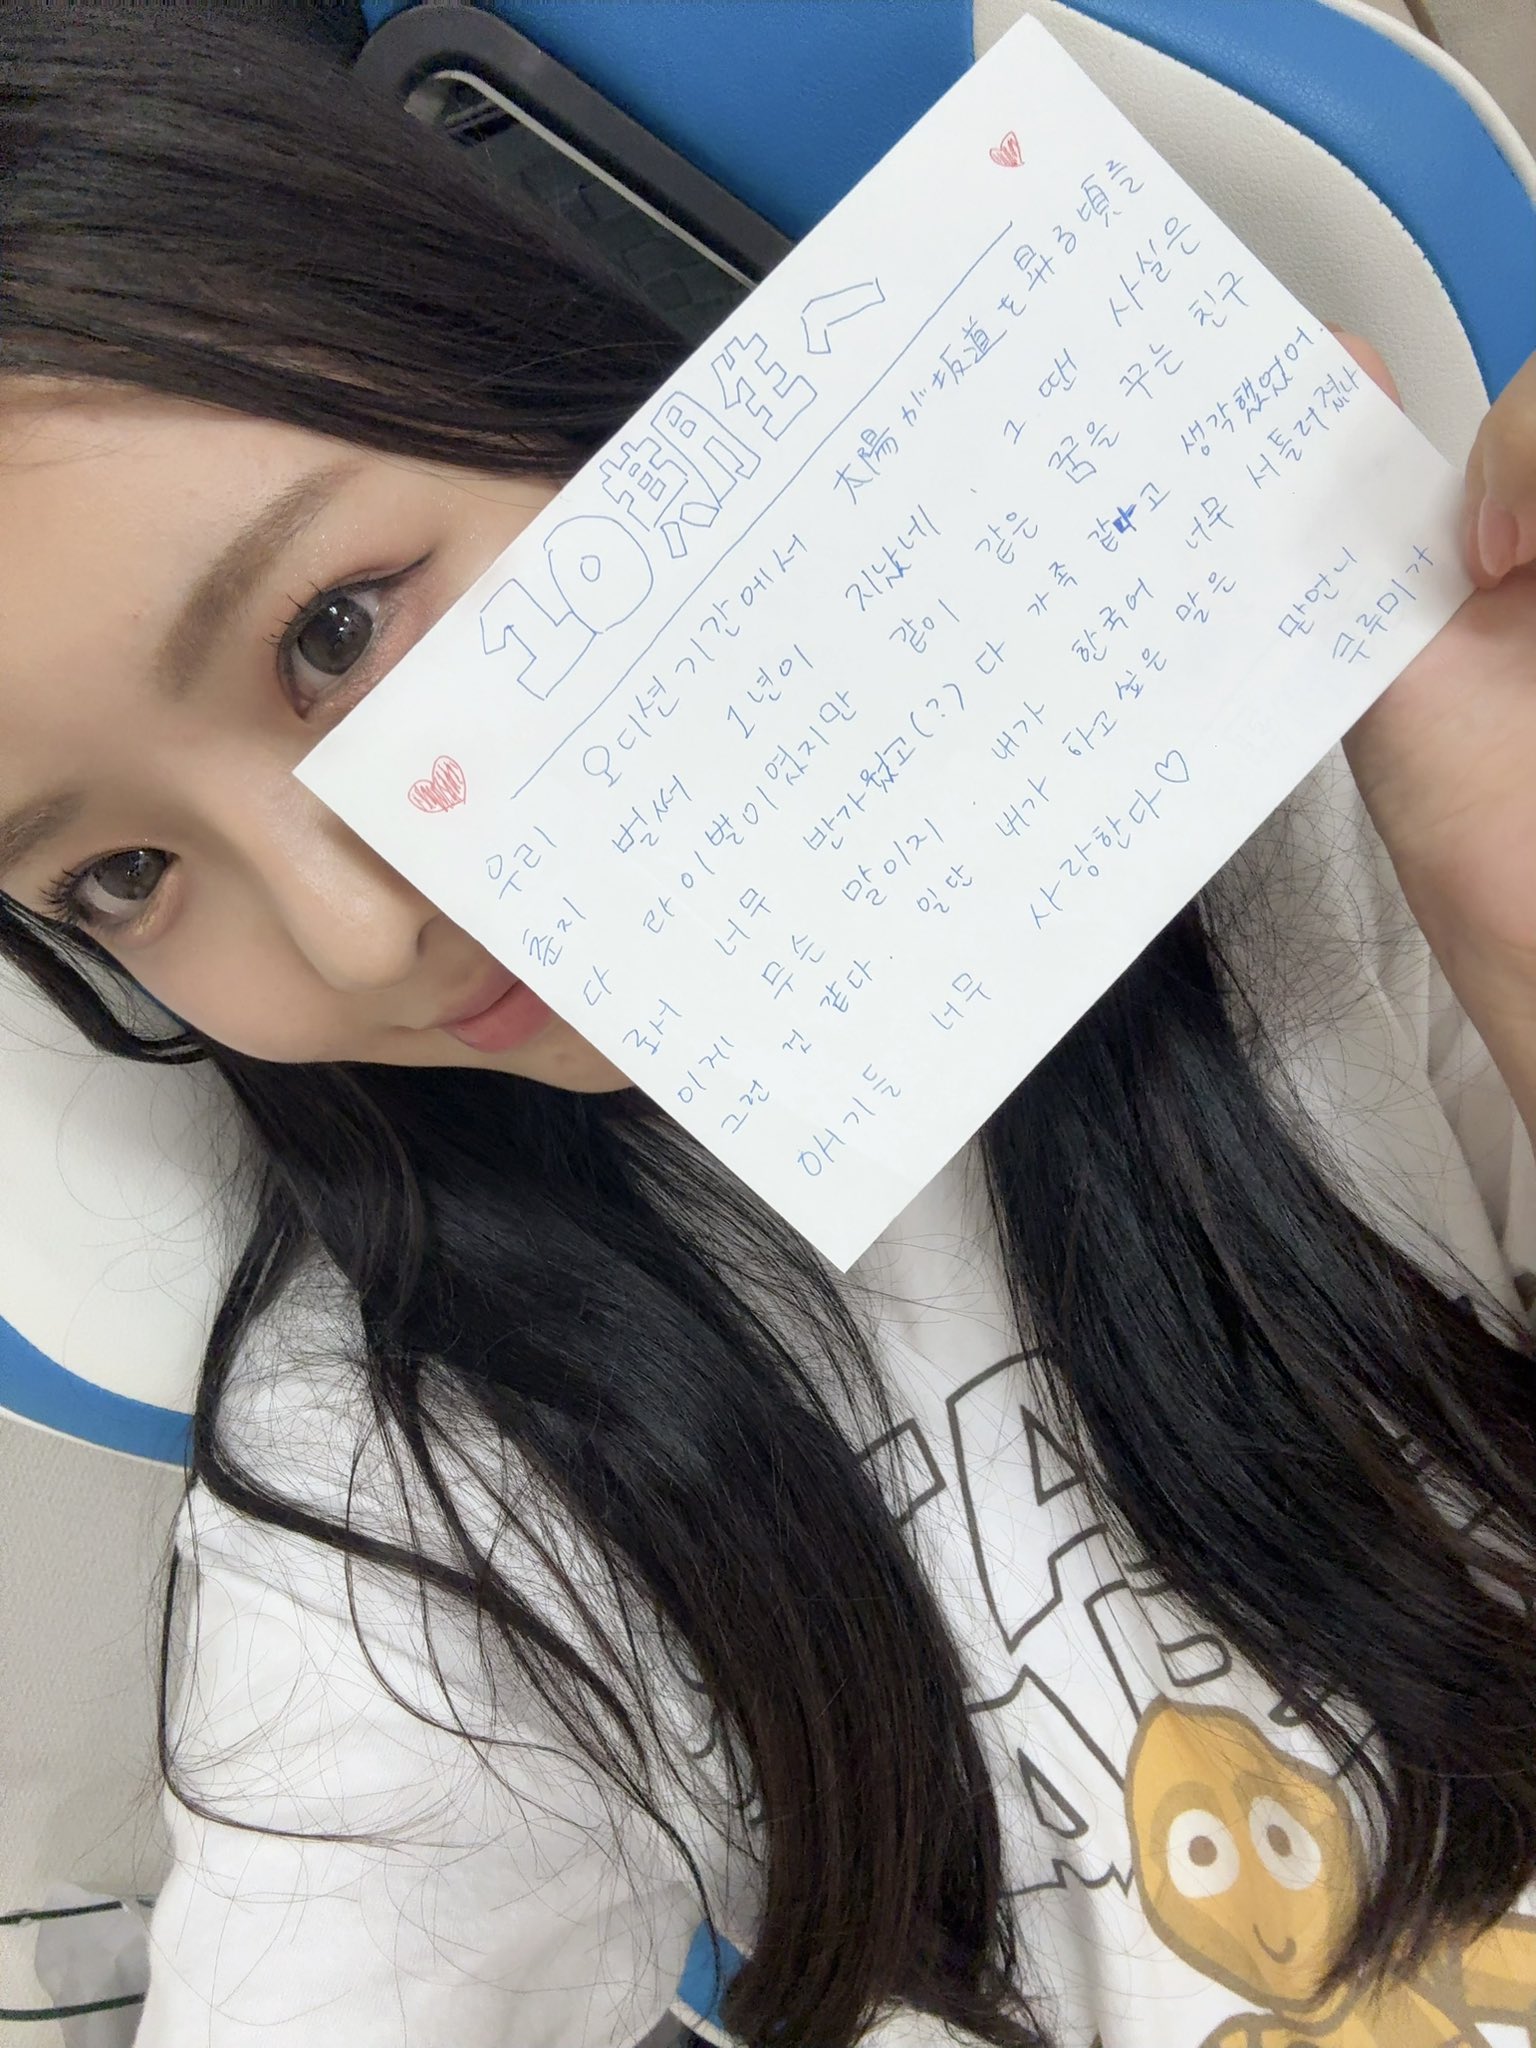 10期生へ
우리 오디션 기간에서 太陽が坂道を昇る頃를
춘지 벌써 1년이 지났네. 그 땐 사실은
다 라이벌이였지만 같이 같은 꿈을 꾸는 친구
로서 너무 반가웠고(?) 다 가족 같다고 생각했었어.
이게 무슨 말이지. 내가 한국어 너무 서툴러졌나
그런 것 같다. 일단 내가 하고 싶은 말은
애기들 너무 사랑한다♡
맏언니
무루미가